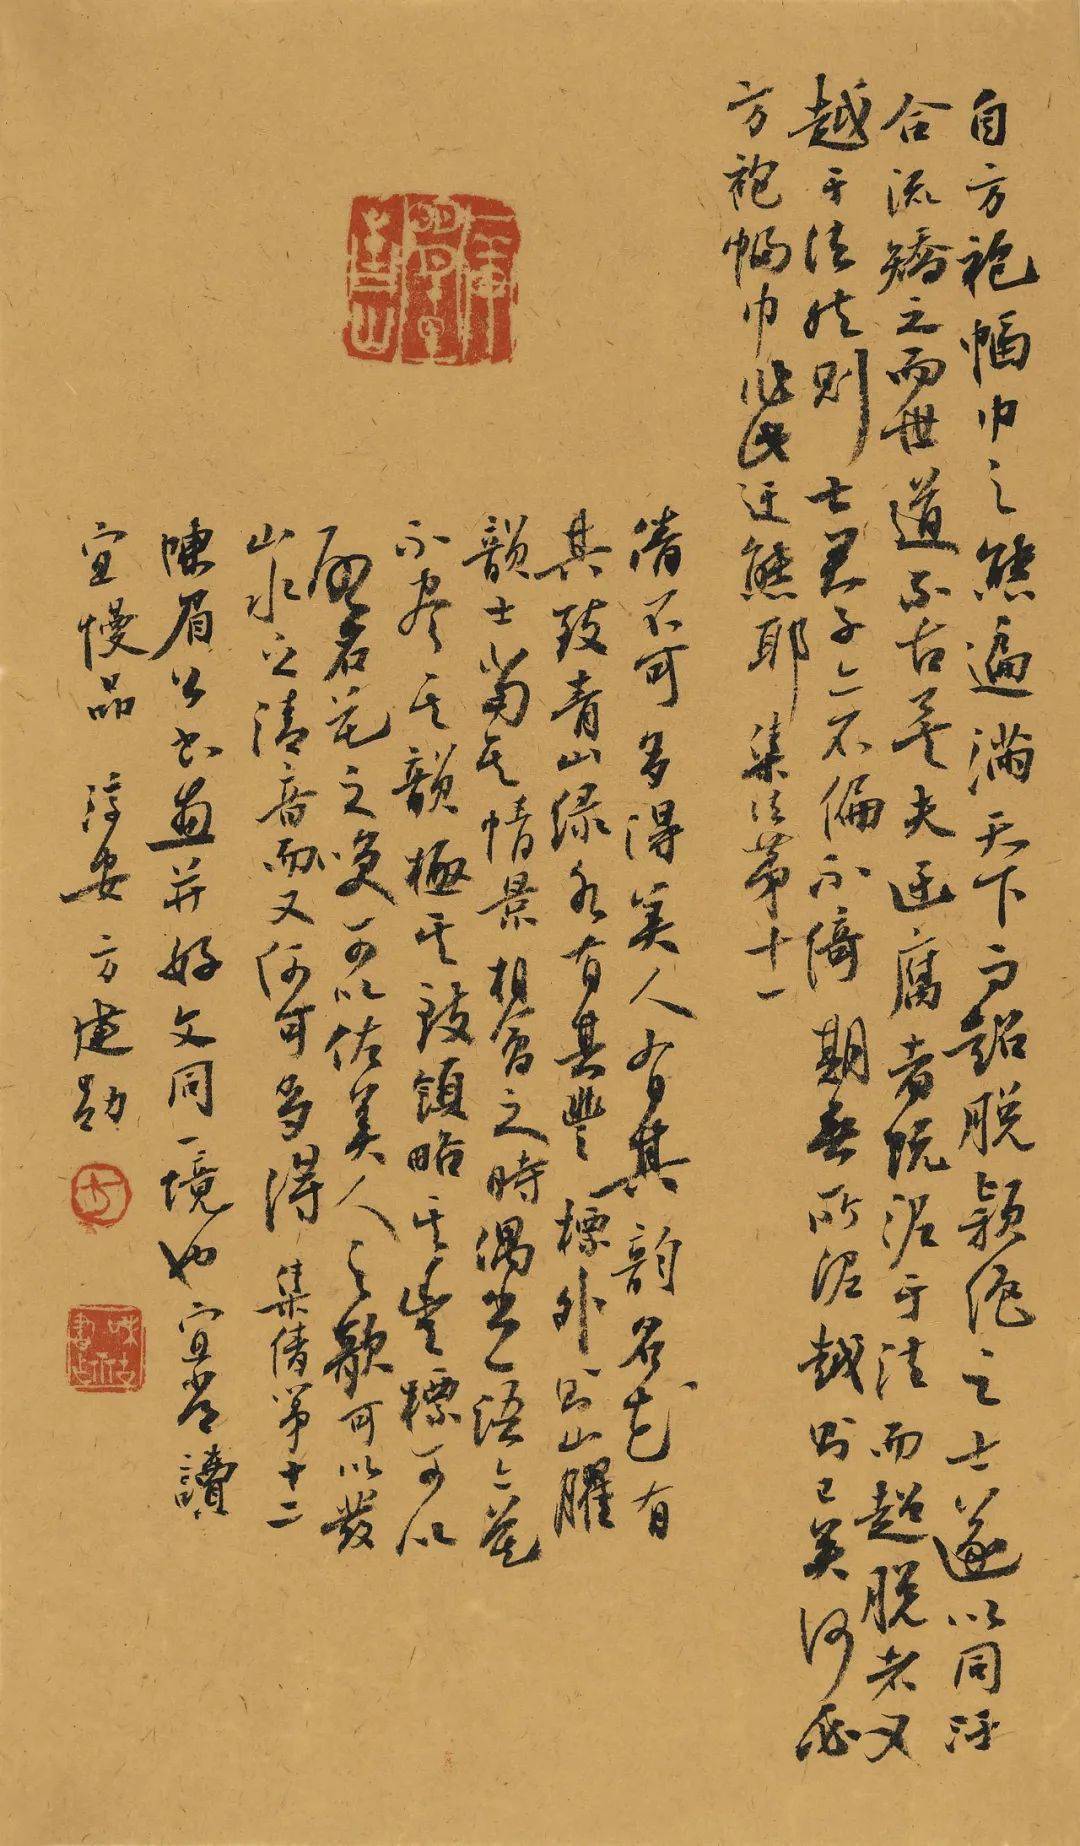 自方袍幅巾之態遍滿天下而超脱颖绝之士遂以同污
合流矯之而世道不古矣夫迂腐者既泥于法而超脱者又
越于法然则士君子亦不偏不倚期無所泥越则已矣何必
方袍幅巾作此迂態耶 集法第十一
倩不可多得美人有其韵名花有
其致青山绿水有其豐標外则山臞
韻士當其情景相會之時偶出一语亦莫
不尽其韻極其致領略其豐標可以
啟名花之笑可以佐美人之歌可以發
山水之清音而又何可多得 集倩第十二
陳眉公書画并好文同一境也宜常讀
宜慢品 淳安方建勛